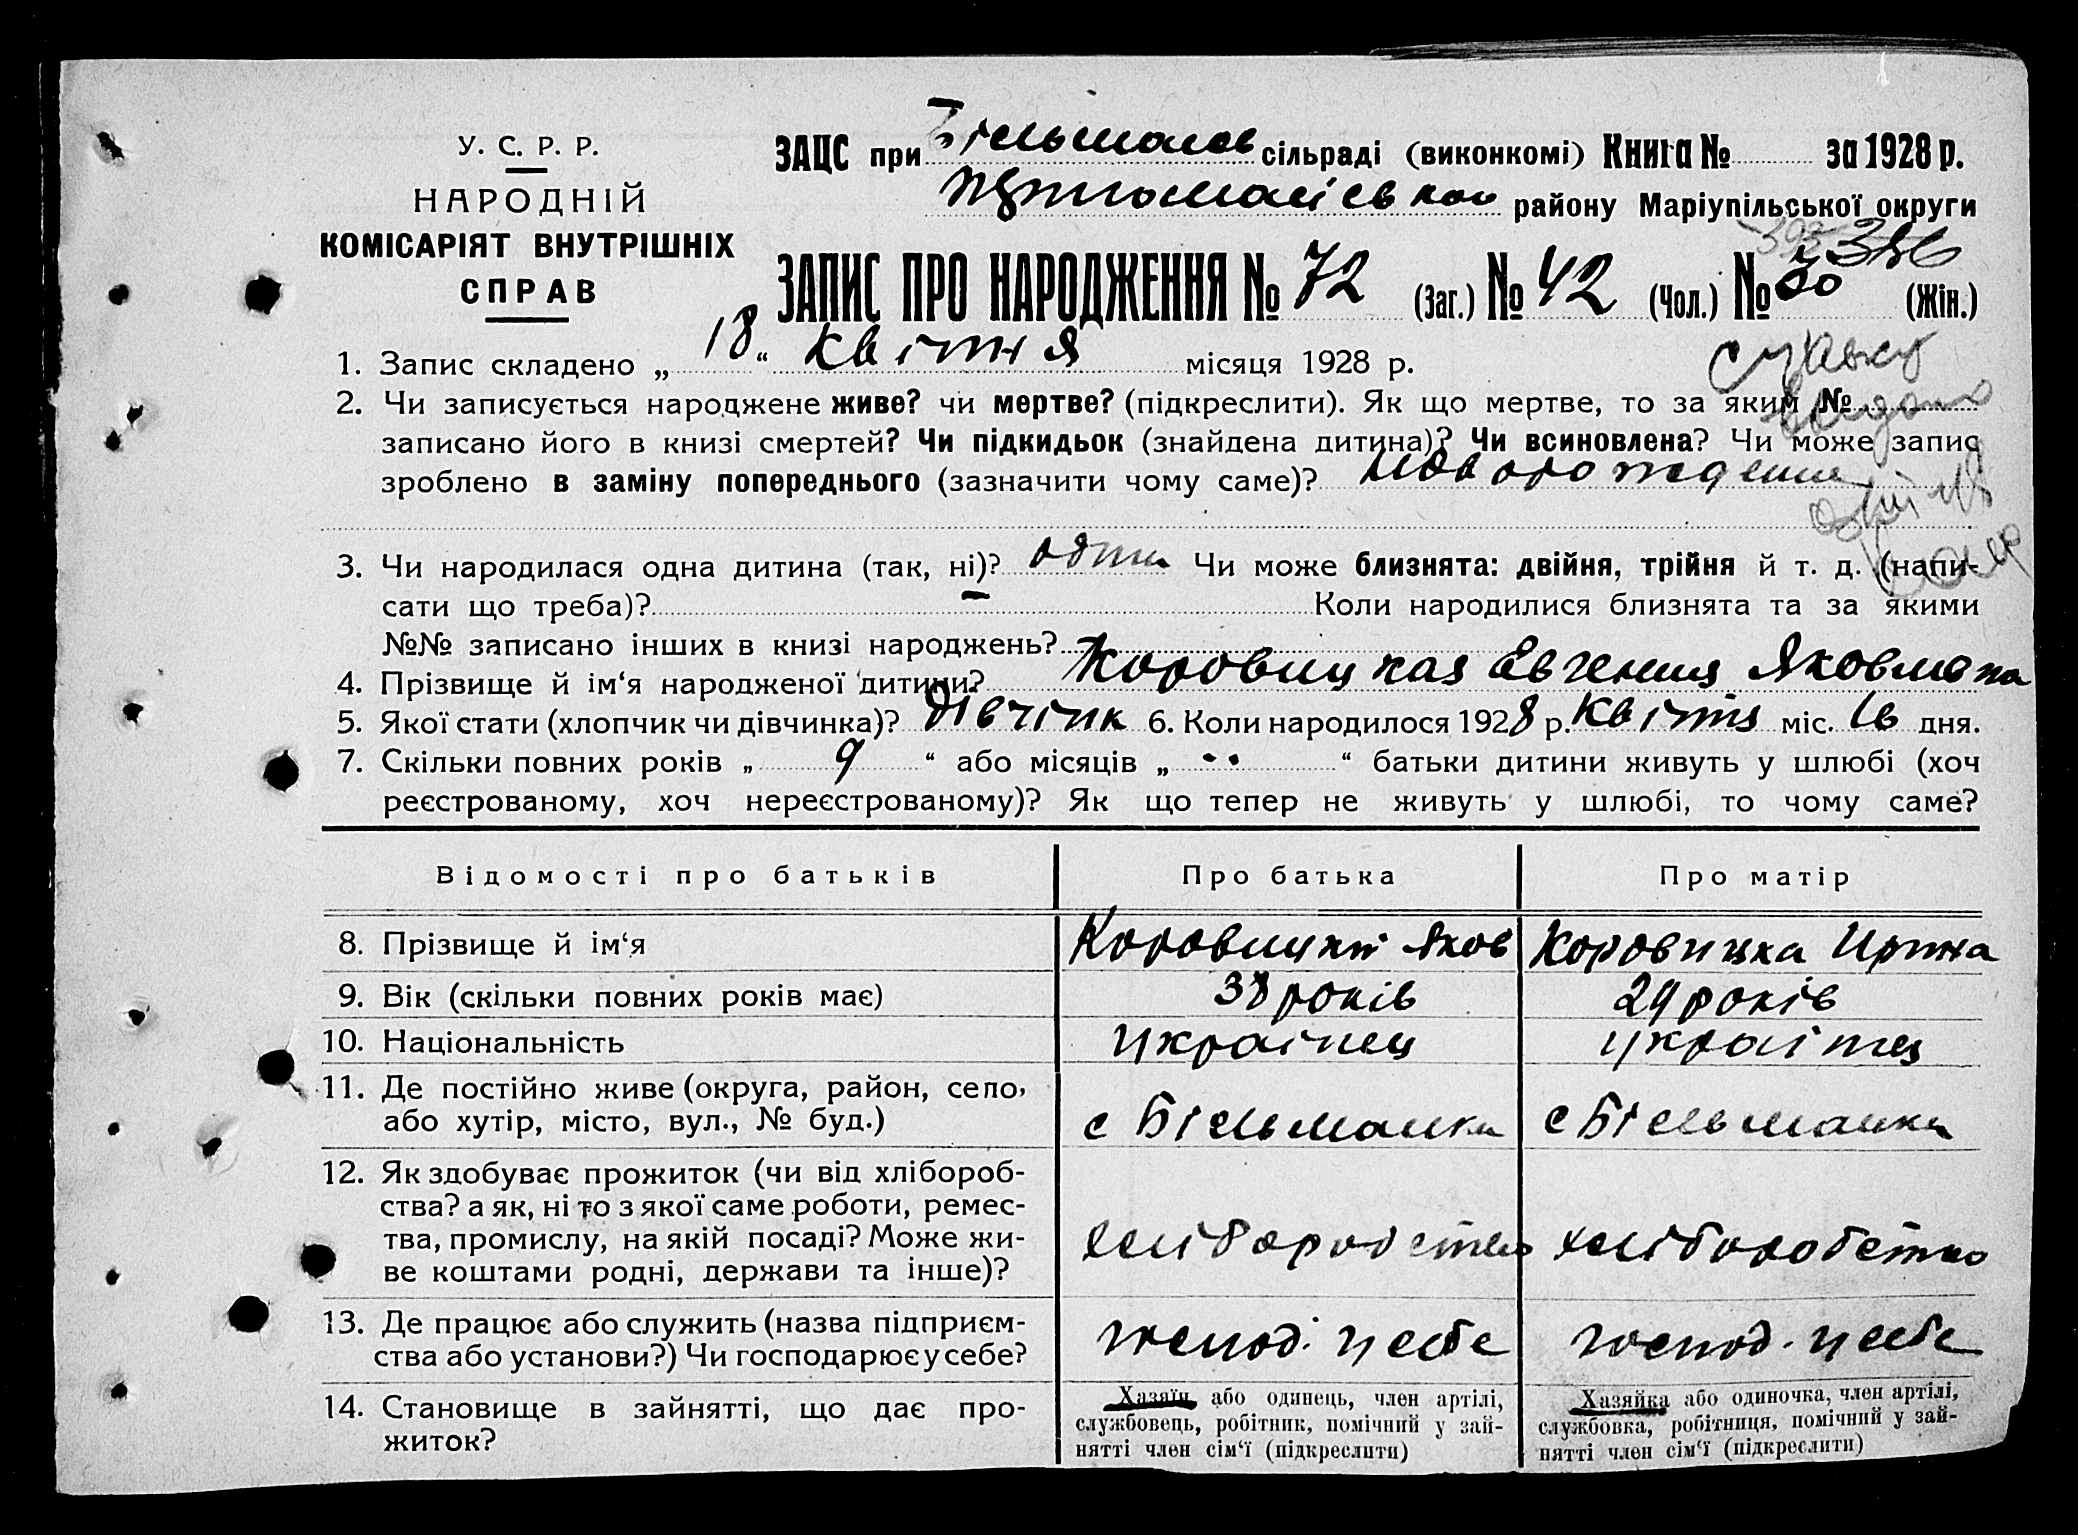 У. С. Р. Р.
НАРОДНІЙ
КОМІСАРІЯТ ВНУТРІШНІХ
СПРАВ
ЗАЦС при Більманськ сільраді (виконкомі) Книга № за 1928 р.
району Маріупільської округи
386
ЗАПИС ПРО НАРОДЖЕННЯ № 72 (Заг.) № 42 (Чол.) № 30 (Жін.)
1. Запис складено „ 18 “ квітня місяця 1928 р.
справку
2. Чи записується народжене живе? чи мертве? (підкреслити). Як що мертве, то за яким №
записано його в книзі смертей? Чи підкидьок (знайдена дитина)? Чи всиновлена? Чи може запис
зроблено в заміну попереднього (зазначити чому саме)?
3. Чи народилася одна дитина (так, ні)? одна Чи може близнята: двійня, трійня й т. д. (напи-
сати що треба)? – Коли народилися близнята та за якими
№№ записано інших в книзі народжень?
4. Прізвище й ім‘я народженої дитини? Коровицкая Евгения Яковлевна
5. Якої стати (хлопчик чи дівчинка)? Дівчінк 6. Коли народилося 1928 р. Квітня міс. 16 дня.
7. Скільки повних років „ 9 “ або місяців „ “ батьки дитини живуть у шлюбі (хоч
реєстрованому, хоч нереєстрованому)? Як що тепер не живуть у шлюбі, то чому саме?
Відомості про батьків Про батька Про матір
8. Прізвище й ім‘я Коровицкий Яков Коровицка Ирина
9. Вік (скільки повних років має) 38 років 29 років
10. Національність Українец українец
11. Де постійно живе (округа, район, село,
або хутір, місто, вул., № буд.) с Більманка с Більманка
12. Як здобуває прожиток (чи від хлібороб-
ства? а як, ні то з якої саме роботи, ремес-
тва, промислу, на якій посаді? Може жи- хліборобство хліборобство
ве коштами родні, держави та інше)?
13. Де працює або служить (назва підприєм- господ. у себе господ. у себе
ства або установи?) Чи господарює у себе?
14. Становище в зайнятті, що дає про-
житок?
Хазяїн або одинець, член артілі,
службовець, робітник, помічний у зай-
нятті член сім‘ї (підкреслити)
Хазяйка або одиночка, член артілі,
службовка, робітниця, помічний у зай-
нятті член сім‘ї (підкреслити)